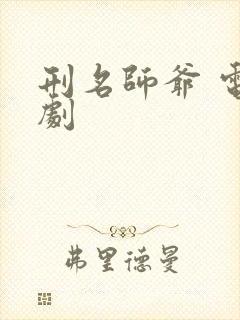 刑名師爺 電
劇
弗里德曼